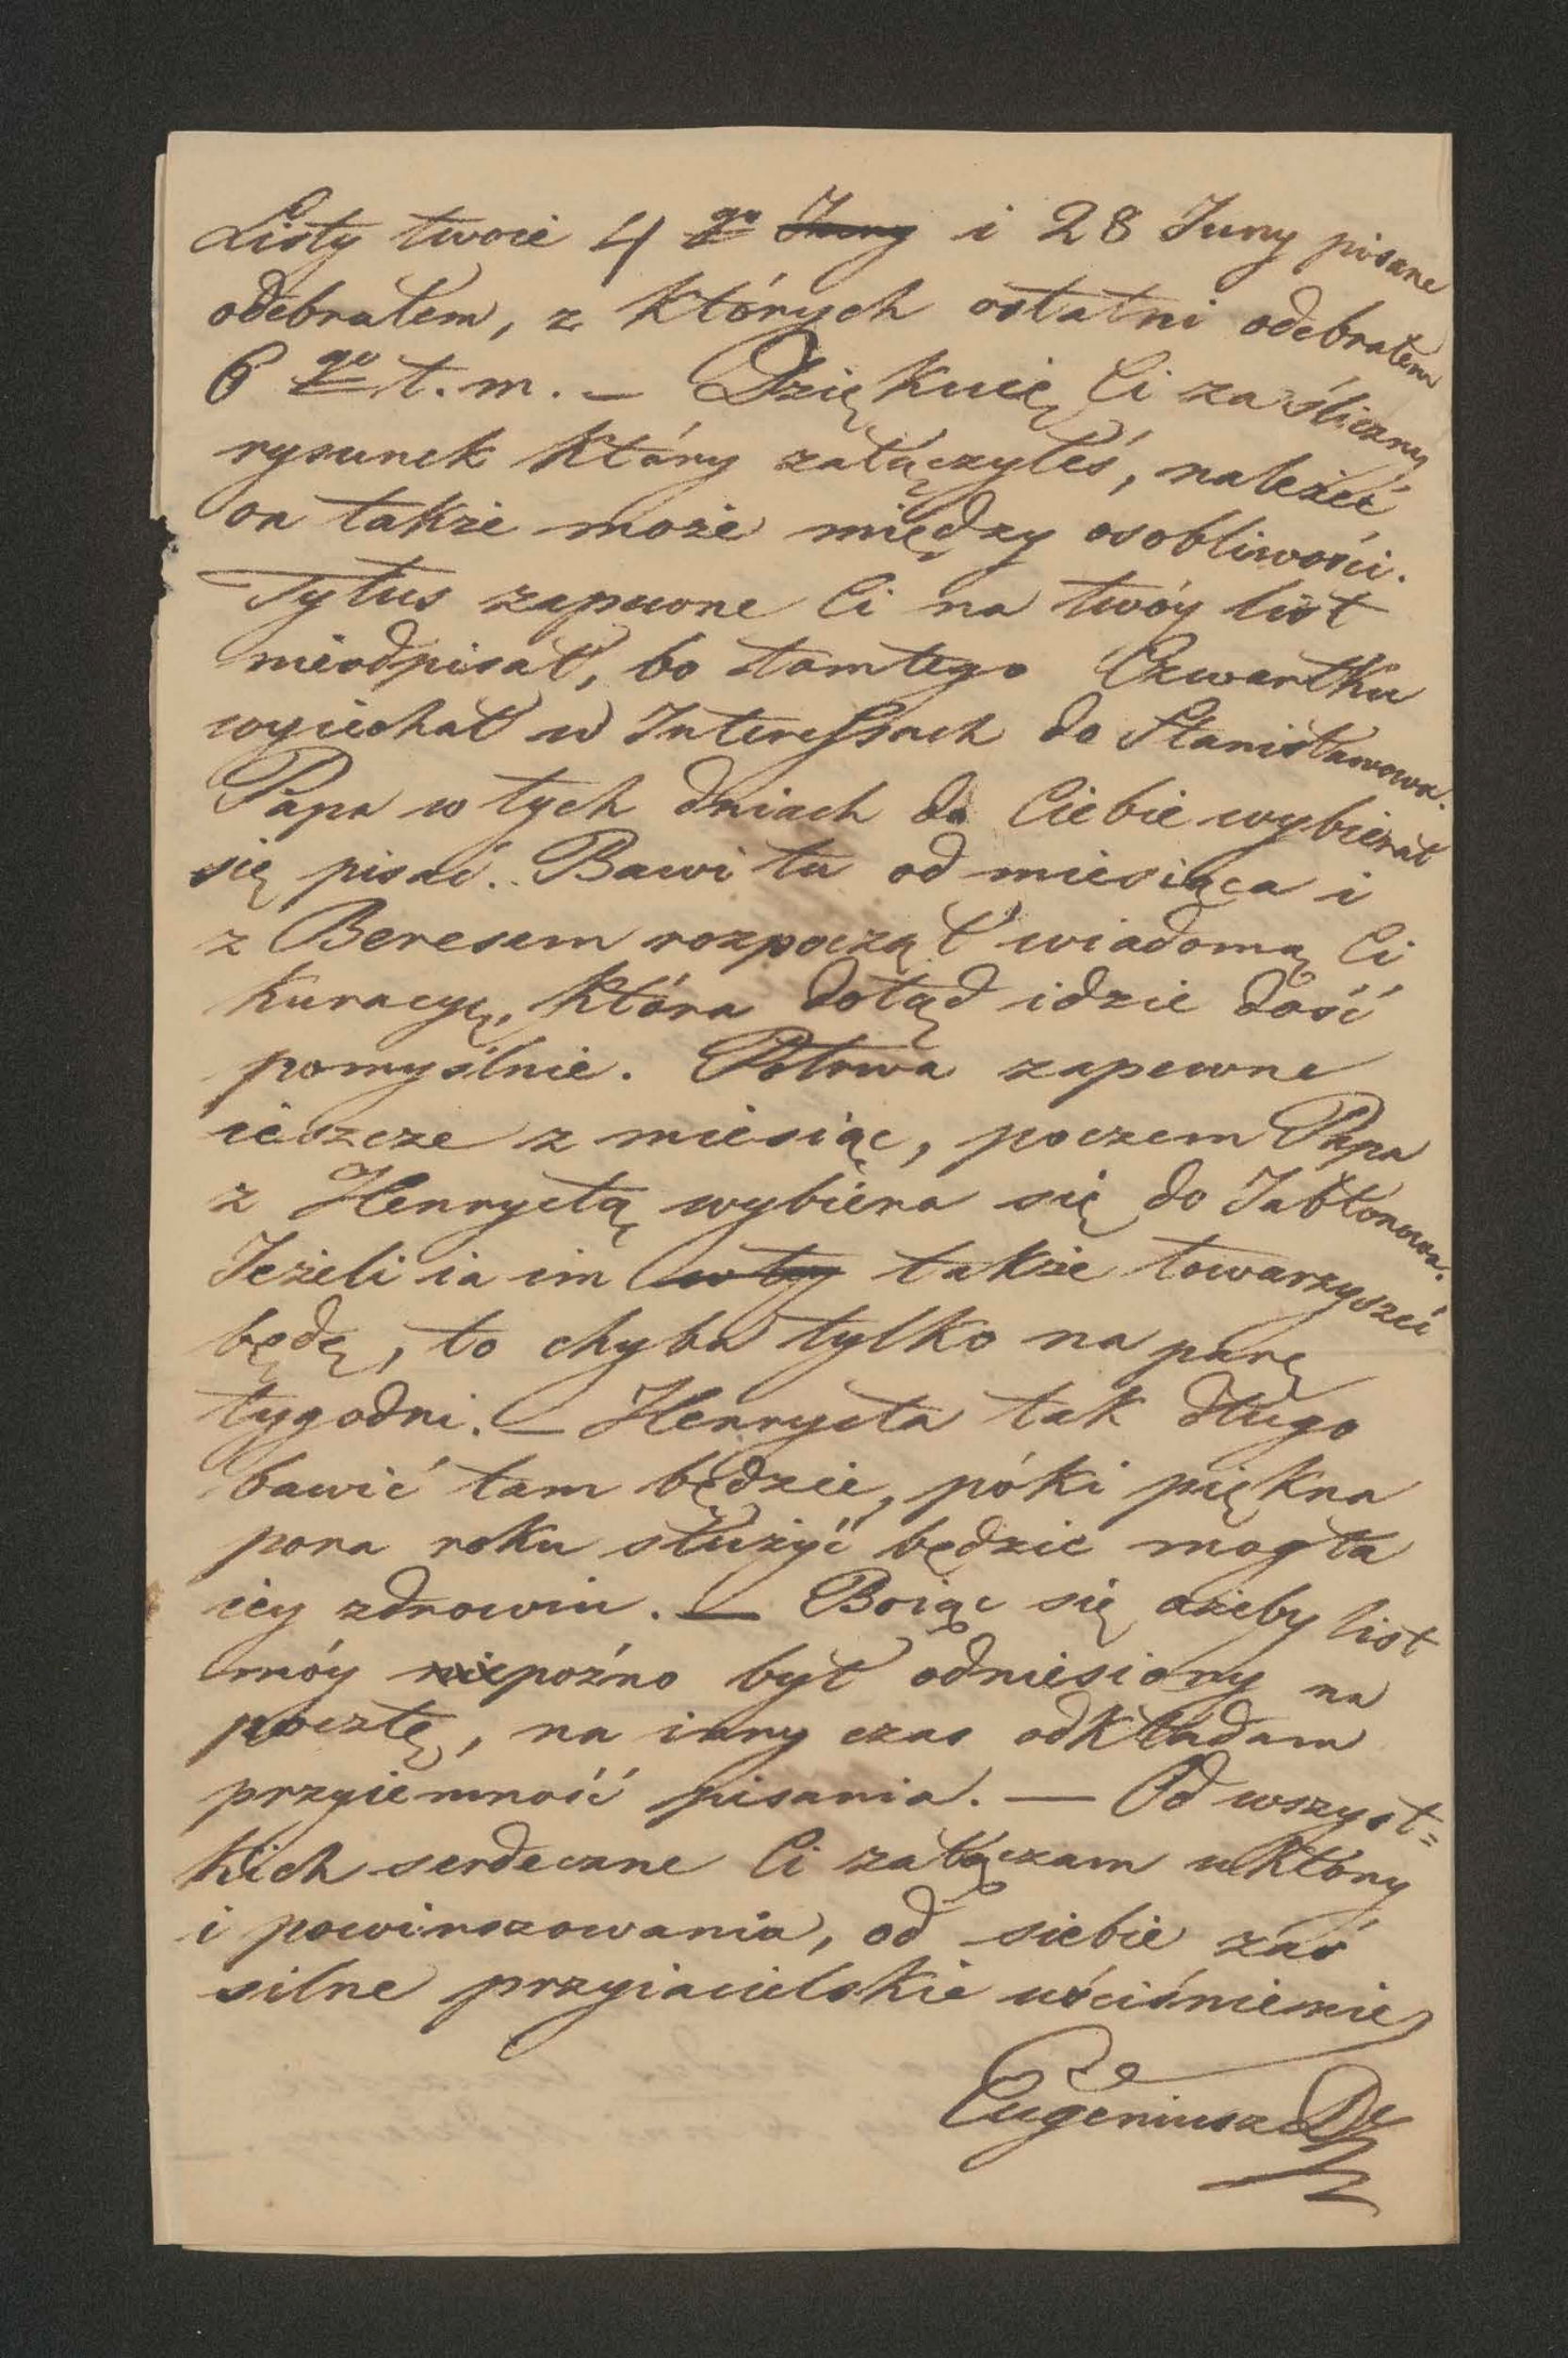 Listy twoie 4 go Juny i 28 Juny pisane
odebrałem, z których ostatni odebrałem
6 go t. m. — Dziękuię Ci za śliczny
rysunek który załączyłeś, należeć
on także może między osobliwości.
Tytus zapewne Ci na twóy list
nieodpisał, bo tamtego Czwartku
wyiechał w Interessach do Stanisławowa.
Papa w tych dniach do Ciebie wybierał
się pisać. Bawi tu od miesiąca i
z Beresem rozpoczął wiadomą Ci
Kuracyę, która dotąd idzie dość
pomyślnie. Potrwa zapewne
ieszcze z miesiąc, poczem Papa
z Henryetą wybiera się do Jabłonowa.
Jeżeli ia im w tey także towarzyszeć
będę, to chyba tylko na parę
tygodni. — Henryeta tak długo
bawić tam będzie, póki piękna
pora roku służyć będzie mogła
iey zdrowiu. — Boiąc się ażeby list
móy niepoźno był odniesiony na
pocztę, na inny czas odkładam
przyiemność pisania. — Od wszyst=
kich serdeczne Ci załączam ukłony
i powinszowania, od siebie zaś
silne przyiacielskie uściśnienie
Eugeniusz